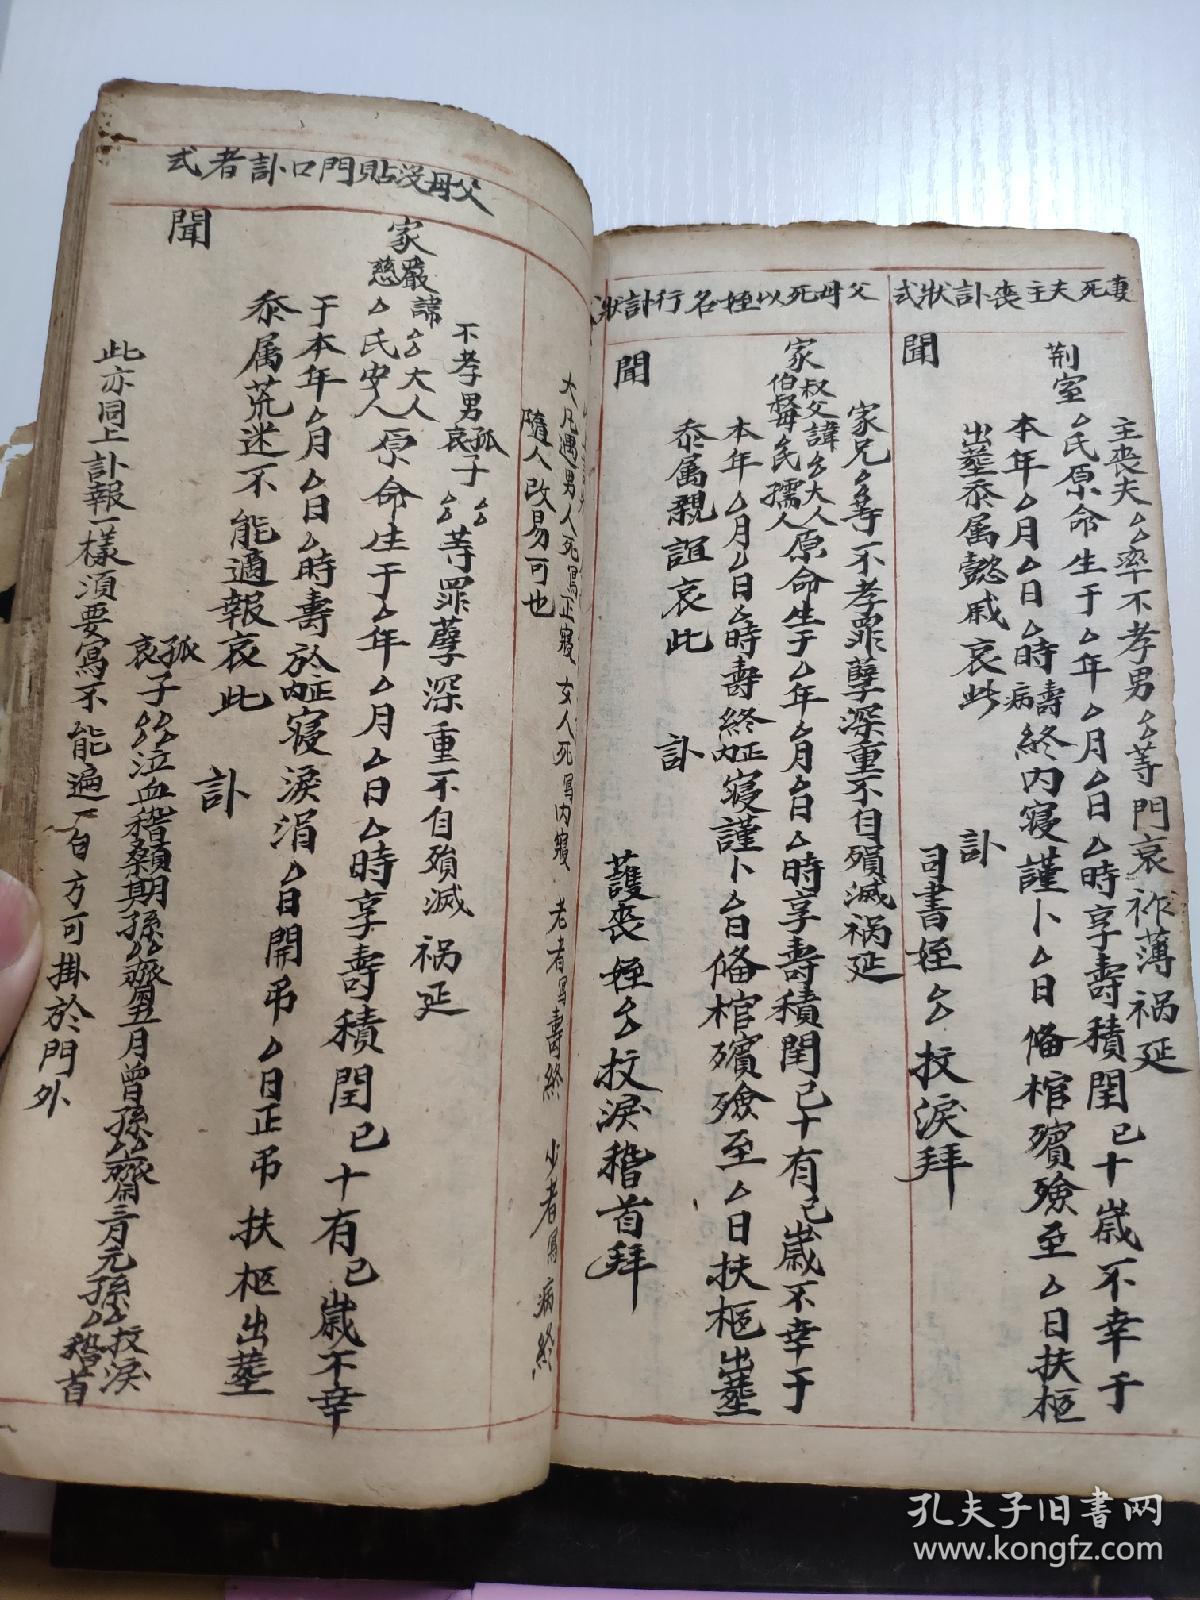 妻死夫主丧訃狀式
主丧夫厶厶率不孝男厶厶等門衰祚薄禍延
荆室厶氏原命生于厶年厶月厶日厶時享壽積閏已十歲不幸于
本年厶月厶日厶時壽病終內寢謹卜厶日俻棺殯殮至厶日扶柩
出塟忝属懿戚哀此
訃
聞
司書姪厶厶抆淚拜
父母死以姪名行訃狀
家兄厶厶等不孝罪孽深重不自殞滅禍延
家叔父諱厶厶大人伯叔母厶氏孺人原命生于厶年厶月厶日厶時享壽積閏已十有已歲不幸于
本年厶月厶日厶時壽終正內寢謹卜厶日俻棺殯殮至厶日扶柩出塟
忝属親誼哀此
訃
聞
護丧姪厶厶抆淚稽首拜
大凡遇男人死寫正寢女人死寫內寢老者寫壽終少者寫病終
隨人改易可也
父母沒貼門口訃者式
不孝男孤哀子厶厶等罪孽深重不自殞滅禍延
家嚴慈諱厶厶大人厶氏安人原命生于厶年厶月厶日厶時享壽積閏已十有已歲不幸
于本年厶月厶日厶時壽於正內寢淚涓厶日開弔厶日正弔扶柩出塟
忝属荒迷不能適報哀此
訃
聞
孤哀子厶厶泣血稽顙期孫厶厶齊衰五月曾孫厶厶齊衰三月元孫厶厶抆淚稽首
此亦同上訃報一樣須要寫不能遍告方可掛於門外
孔夫子旧书网
www.kongfz.com